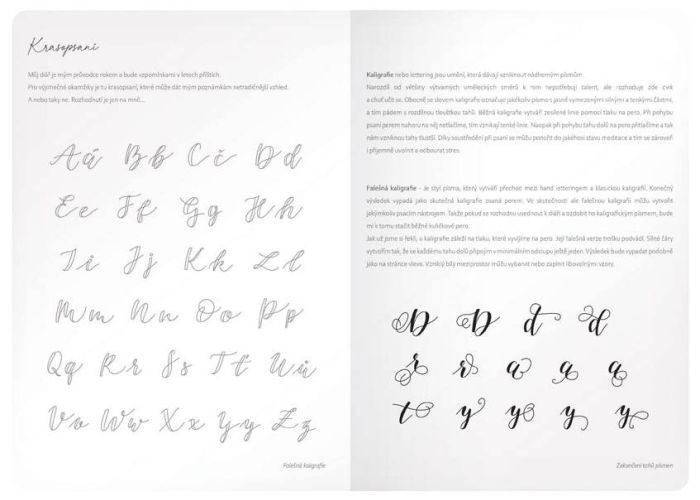 Krasopsaní
Můj diář je mým průvodce rokem a bude vzpomínkami v letech příštích.
Pro výjimečné okamžiky je tu krasopsaní, které může dát mým poznámkám netradičnější vzhled.
A nebo taky ne. Rozhodnutí je jen na mně...
Aá Bb Cč Dd
Ee Ff Gg Hh
Ii Jj Kk Ll
Mm Nn Oo Pp
Qq Rr Ss Tť Uů
Vv Ww Xx Yy Zz
Falešná kaligrafie
Kaligrafie nebo lettering jsou umění, která dávají vzniknout nádherným písmům.
Narozdíl od většiny výtvarných uměleckých směrů k nim nepotřebuji talent, ale rozhoduje zde cvik
a chuť učit se. Obecně se slovem kaligrafie označuje jakékoliv písmo s jasně vymezenými silnými a tenkými částmi,
a tím pádem s rozdílnou tloušťkou tahů. Běžná kaligrafie vytváří zesílené linie pomocí tlaku na pero. Při pohybu
psaní perem nahoru na něj netlačíme, tím vznikají tenké linie. Naopak při pohybu tahů dolů na pero přitlačíme a tak
nám vzniknou tahy tlustší. Díky soustředění při psaní se můžu ponořit do jakéhosi stavu meditace a tím se zároveň
i příjemně uvolnit a odbourat stres.
Falešná kaligrafie - Je styl písma, který vytváří přechod mezi hand letteringem a klasickou kaligrafií. Konečný
výsledek vypadá jako skutečná kaligrafie psaná perem. Ve skutečnosti ale falešnou kaligrafii můžu vytvořit
jakýmkoliv psacím nástrojem. Takže pokud se rozhodnu usednout k diáři a ozdobit ho kaligrafickým písmem, bude
mi k tomu stačit běžné kuličkové pero.
Jak už jsme si řekli, u kaligrafie záleží na tlaku, které vyvíjíme na pero. Její falešná verze trošku podvádí. Silné čáry
vytvořím tak, že se každému tahu dolů připojím v minimálním odstupu ještě jeden. Výsledek bude vypadat podobně
jako na stránce vlevo. Vzniklý bílý meziprostor můžu vybarvit nebo zaplnit libovolnými vzory.
D D d d
r r a a a
t y y y y
Zakončení tahů písmen